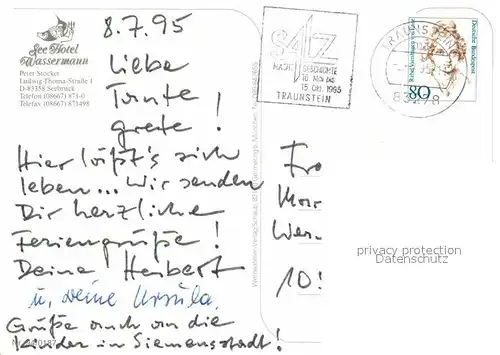 8.7.95
See Hotel
Wassermann
Peter Stocker
Ludwig-Thoma-Straße 1
D-83358 Seebruck
Telefon (08667) 871-0
Telefax (08667) 871498
Liebe
Tante
Grete!
Hier läßt's sich
leben... Wir senden
Dir herzliche
Feriengrüße!
Deine Heribert
u. deine Ursula.
Grüße auch an die
Kinder in Siemensstadt!
SALZ
MACHT GESCHICHTE
15. OKT. 1995
TRAUNSTEIN
TRAUNSTEIN
83278
Deutsche Bundespost
80
Fro
Wer
10
privacy protection
Datenschutz